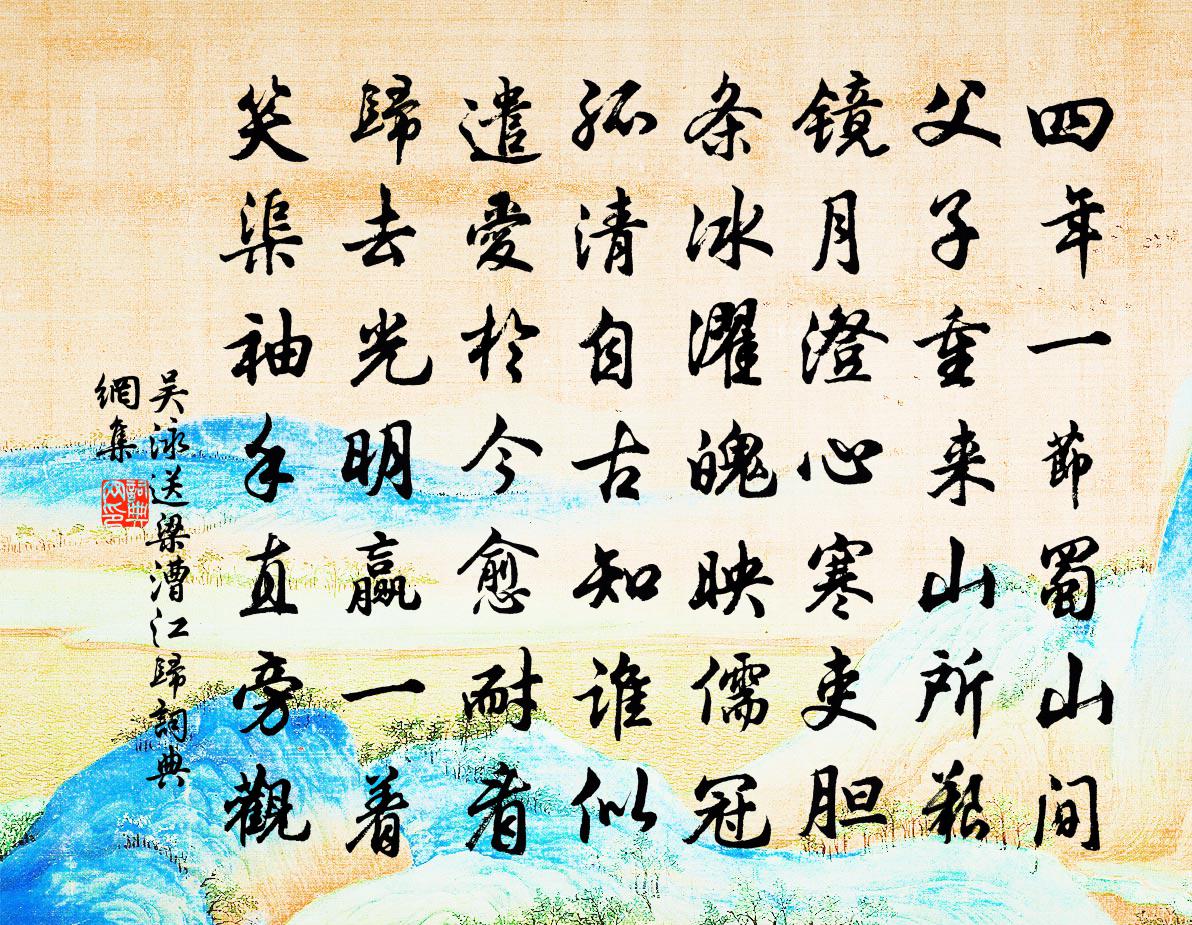 四年一節蜀山间
父子重来山所艱
镜月澄心寒吏胆
条冰濯魄映儒冠
孤清自古知谁似
遣愛於今愈耐看
歸去光明赢一着
笑渠袖手直旁觀
吴泳送梁漕江歸詞典
網集